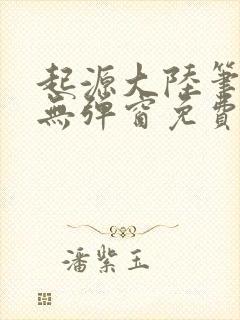 起源大陸筆
無彈窗免費
潘紫玉